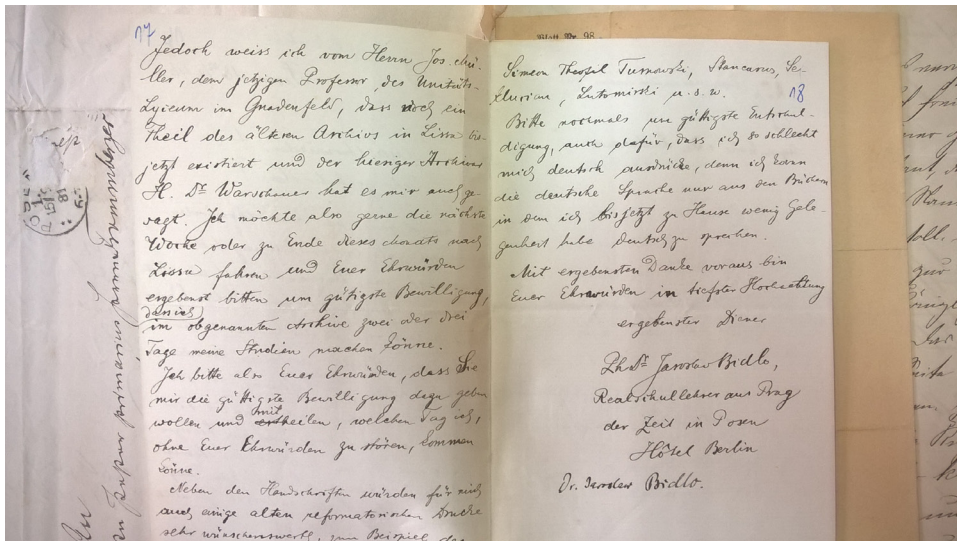 17
Jedoch weiss ich vom Herrn Jos. Mül-
ller, dem jetzigen Professor des Unitäts-
Lyceum im Gnadenfeld, dass noch ein
Theil des älteren Archivs in Lissa bis-
jetzt existiert und der hiesiger Archivar
H. Dr Warschauer hat es mir auch ge-
sagt. Ich möchte also gerne die nächste
Woche oder zu Ende dieses Monats nach
Lissa fahren und Euer Ehrwürden
ergebenst bitten um gütigste Bewilligung,
dass ich
im obgenannten Archive zwei oder drei
Tage meine Studien machen könne.
Ich bitte also Euer Ehrwürden, dass Sie
mir die gütigste Bewilligung dazu geben
wollen und mittheilen, welchen Tag ich,
ohne Euer Ehrwürden zu stören, kommen
könne.
Neben den Handschriften würden für mich
auch einige alten reformatorischen Drucke
sehr wünschenswerth, zum Beispiel
Blatt Nr. 98.
Simeon Theofil Turnowski, Stancarus, Ge-
18
Lutomirski u. s. w.
Bitte nochmals um gütigste Entschul-
digung, auch dafür, dass ich so schlecht
mich deutsch ausdrücke, denn ich kann
die deutsche Sprache nur aus den Büchern
in dem ich bisjetzt zu Hause wenig Gele-
genheit habe deutsch zu sprechen.
Mit ergebensten Danke voraus bin
Euer Ehrwürden in tiefster Hochachtung
ergebenster Diener
Ph Dr Jaroslav Bidlo,
Realschullehrer aus Prag
der Zeit in Posen
Hôtel Berlin
Dr. Jaroslav Bidlo.